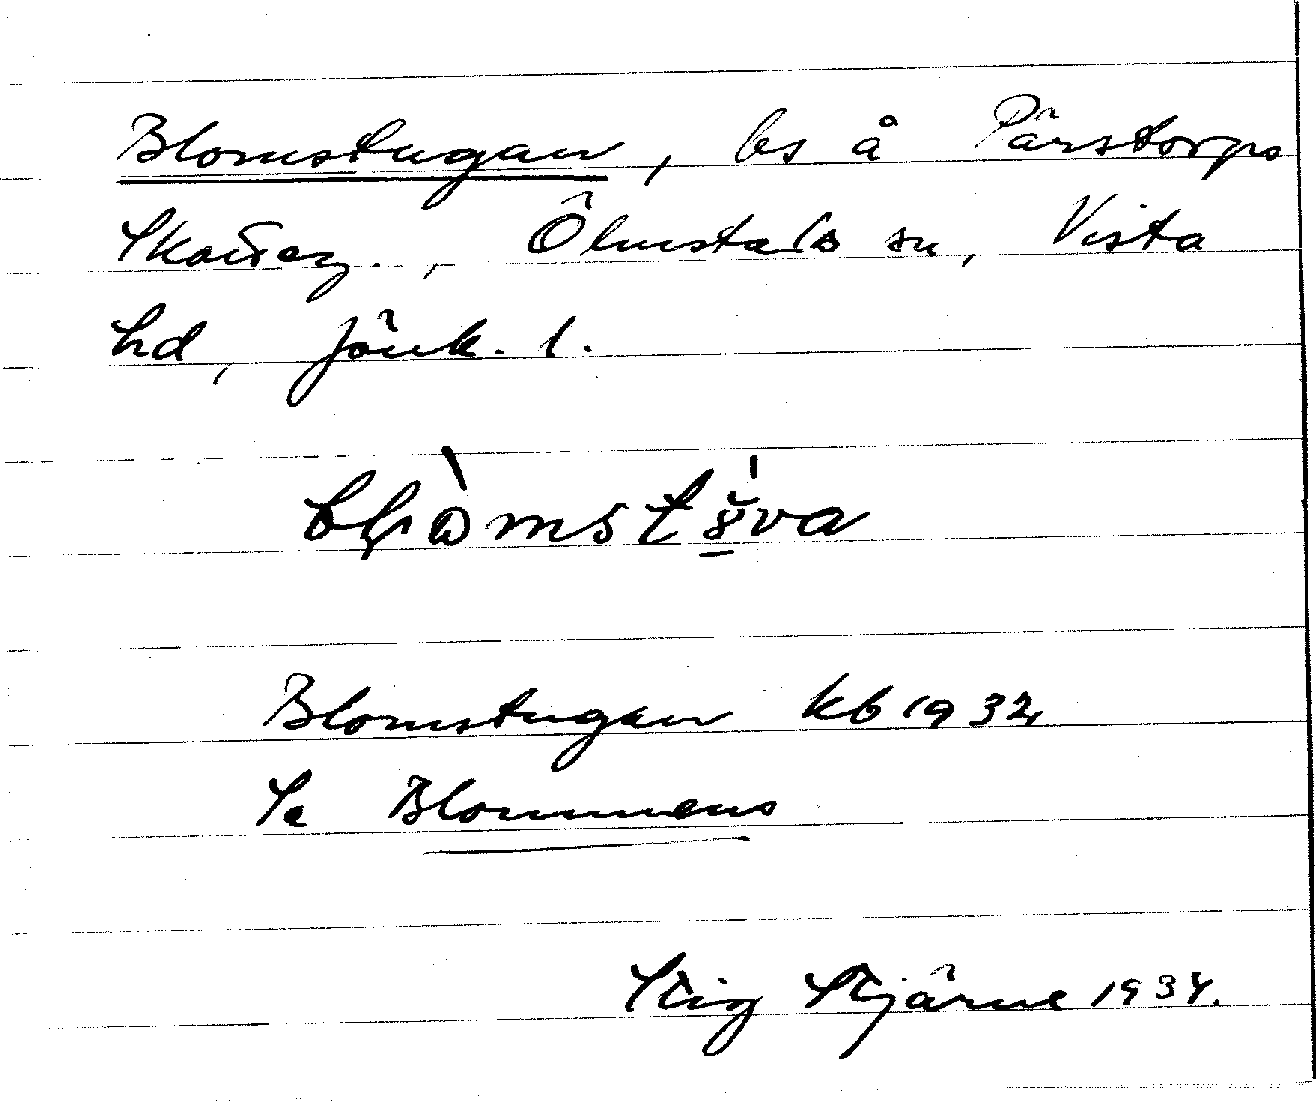 Blomstugan, bs å Pärstorps
Skatteg., Ölmstads sn, Vista
hd, Jönk. l.
Blomstugan kb 1932
Se Blommens
Stig Stjärne 1934.